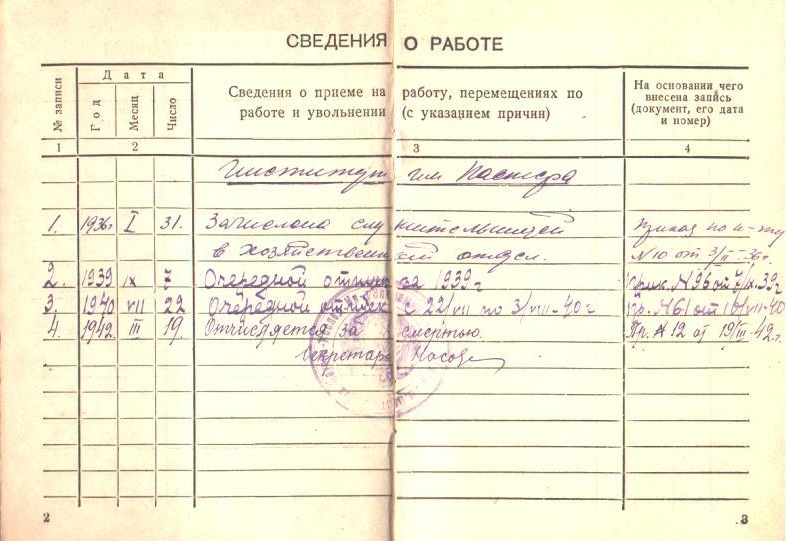 СВЕДЕНИЯ О РАБОТЕ
№ записи
Дата
Год
Месяц
Число
Сведения о приеме на работу, перемещениях по
работе и увольнении (с указанием причин)
На основании чего
внесена запись
(документ, его дата
и номер)
1 2 3 4
Институт им Пастера
1. 1936г I 31. Зачислена служительницей Приказ по и-ту
в хозяйственный отдел. N 10 от 3/II-36г.
2. 1939 IX 7 Очередной отпуск за 1939 г Прик. N 96 от 7/IX.39г
3. 1940 VII 22 Очередной отпуск с 22/VII по 3/VIII-40г Пр. N 61 от VII-40
4. 1942 III 19. Отчисляется за смертью. Пр. № 12 от 19/III-42г.
Секретарь
2
3